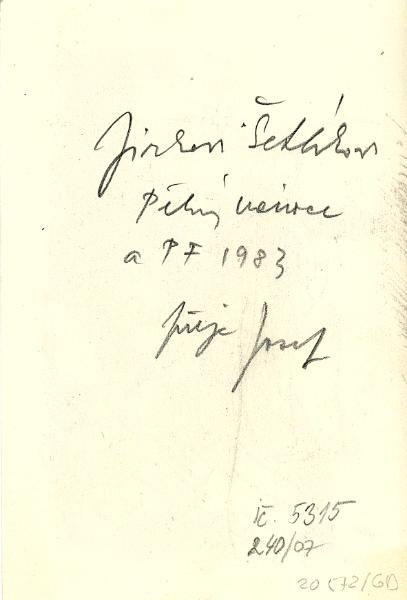 Jirkovi Šetlíkovi
Pěkné vánoce
a PF 1983
přeje Josef
IČ. 5315
240/07
20572/GD